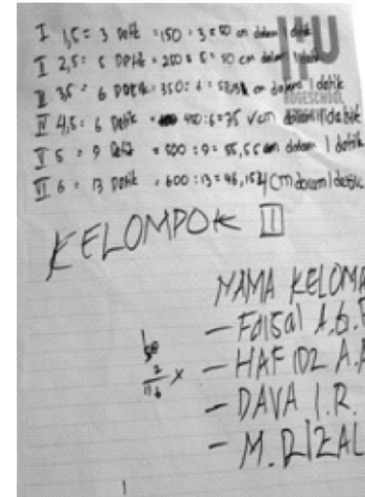 I 1,5 = 3 Detik = 150 : 3 = 50 cm dalam 1 detik
II 2,5 = 5 Detik = 250 : 5 = 50 cm dalam 1 detik
III 3,5 = 6 Detik = 350 : 6 = cm dalam 1 detik
IV 4,5 = 6 Detik = 450 : 6 = 75 cm dalam 1 detik
V 5 = 9 Detik = 500 : 9 = 55,55 cm dalam 1 detik
VI 6 = 13 Detik = 600 : 13 = 46,154 cm dalam 1 detik
HOGESCHOOL
KELOMPOK II
NAMA KELOMP
- Faisal A.B.
- HAFIDZ A.A
- DAVA I.R.
- M. RIZAL
2 x